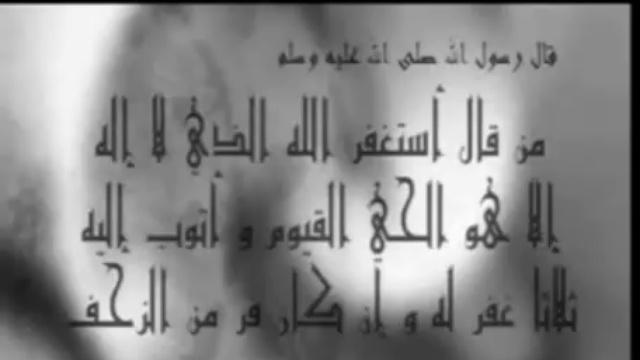 قال رسول الله صلى الله عليه وسلم
من قال أستغفر الله الذي لا إله
إلا هو الحي القيوم و أتوب إليه
ثلاثا غفر له و إن كان فر من الزحف